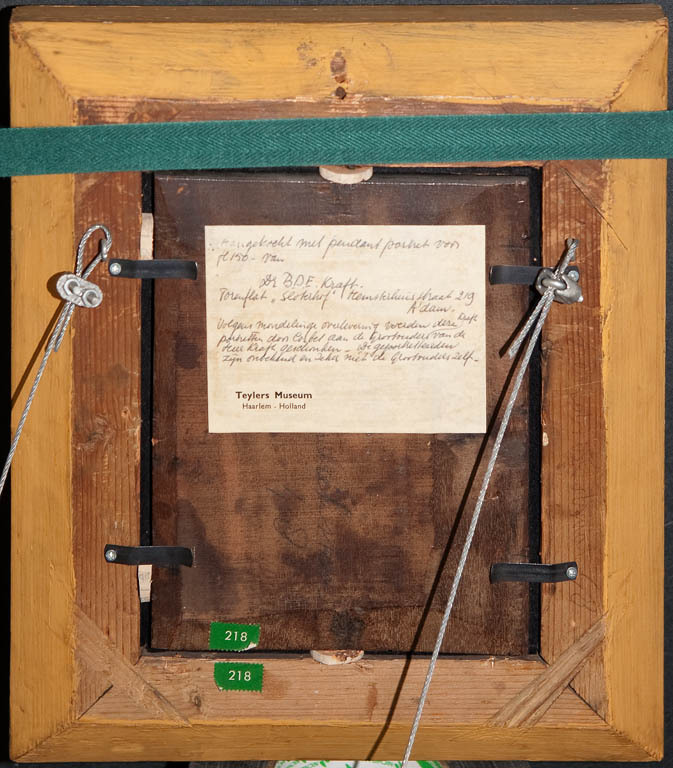 Aangekocht met pendant portret voor
fl 150 - van
Dr B.D.E. Kraft.
Torenflat „Sloterhof" Hemsterhuisstraat 219
A'dam.
Volgens mondelinge overlevering werden deze
portretten door Corbet aan de Grootouders van de
Heer Kraft geschonken - De geportretteerden
zijn onbekend en zeker niet de Grootouders zelf -
Teylers Museum
Haarlem - Holland
218
218